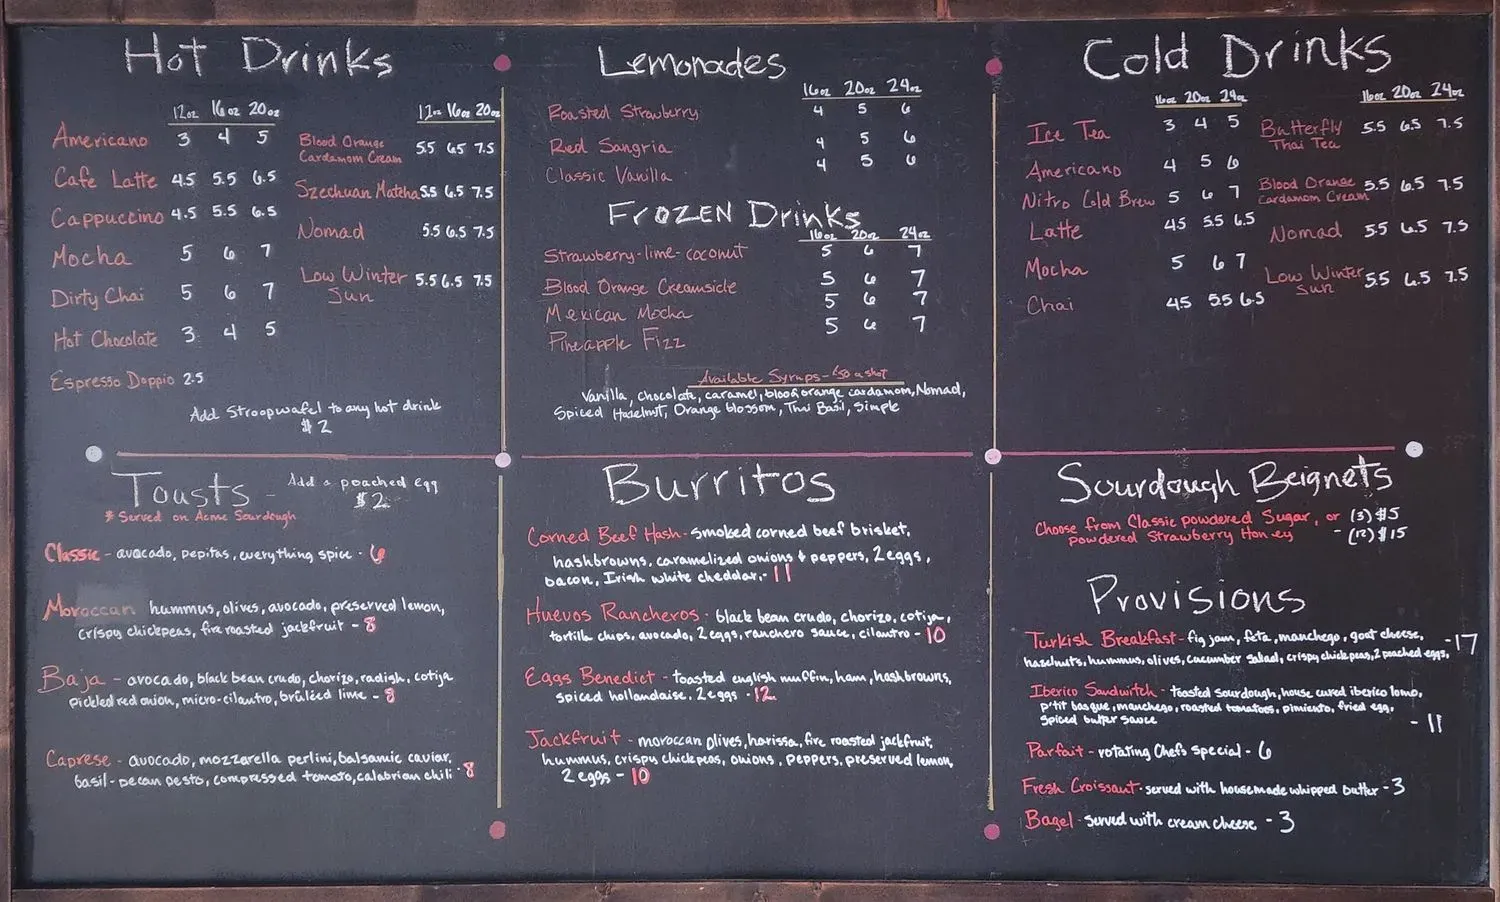 Hot Drinks
12oz 16oz 20oz
Americano 3 4 5
Cafe Latte 4.5 5.5 6.5
Cappuccino 4.5 5.5 6.5
Mocha 5 6 7
Dirty Chai 5 6 7
Hot Chocolate 3 4 5
Espresso Doppio 2.5
12oz 16oz 20oz
Blood Orange
Cardamom Cream 5.5 6.5 7.5
Szechuan Matcha 5.5 6.5 7.5
Nomad 5.5 6.5 7.5
Low Winter
Sun 5.5 6.5 7.5
Add Stroopwafel to any hot drink
$2
Lemonades
16oz 20oz 24oz
Roasted Strawberry 4 5 6
Red Sangria 4 5 6
Classic Vanilla 4 5 6
Frozen Drinks
16oz 20oz 24oz
Strawberry-lime-coconut 5 6 7
Blood Orange Creamsicle 5 6 7
Mexican Mocha 5 6 7
Pineapple Fizz 5 6 7
Available Syrups - .50 a shot
Vanilla, chocolate, caramel, blood orange cardamom, Nomad,
Spiced Hazelnut, Orange blossom, Thai Basil, Simple
Cold Drinks
16oz 20oz 24oz
Ice Tea 3 4 5
Americano 4 5 6
Nitro Cold Brew 5 6 7
Latte 4.5 5.5 6.5
Mocha 5 6 7
Chai 4.5 5.5 6.5
16oz 20oz 24oz
Butterfly
Thai Tea 5.5 6.5 7.5
Blood Orange
Cardamom Cream 5.5 6.5 7.5
Nomad 5.5 6.5 7.5
Low Winter
Sun 5.5 6.5 7.5
Toasts - Add a poached egg
$2
* Served on Acme Sourdough
Classic - avocado, pepitas, everything spice - 6
Moroccan hummus, olives, avocado, preserved lemon,
crispy chickpeas, fire roasted jackfruit - 8
Baja - avocado, black bean crudo, chorizo, radish, cotija
pickled red onion, micro-cilantro, brûléed lime - 8
Caprese - avocado, mozzarella perlini, balsamic caviar,
basil-pecan pesto, compressed tomato, calabrian chili - 8
Burritos
Corned Beef Hash - smoked corned beef brisket,
hashbrowns, caramelized onions & peppers, 2 eggs,
bacon, Irish white cheddar. - 11
Huevos Rancheros - black bean crudo, chorizo, cotija,
tortilla chips, avocado, 2 eggs, ranchero sauce, cilantro - 10
Eggs Benedict - toasted english muffin, ham, hashbrowns,
spiced hollandaise, 2 eggs - 12
Jackfruit - moroccan olives, harissa, fire roasted jackfruit,
hummus, crispy chickpeas, onions, peppers, preserved lemon,
2 eggs - 10
Sourdough Beignets
Choose from Classic powdered Sugar, or (3) $5
powdered Strawberry Honey - (12) $15
Provisions
Turkish Breakfast - fig jam, feta, manchego, goat cheese,
hazelnuts, hummus, olives, cucumber salad, crispy chickpeas, 2 poached eggs, - 17
Iberico Sandwitch - toasted sourdough, house cured iberico lomo,
p'tit basque, manchego, roasted tomatoes, pimiento, fried egg,
spiced butter sauce - 11
Parfait - rotating Chefs special - 6
Fresh Croissant - served with housemade whipped butter - 3
Bagel - served with cream cheese - 3